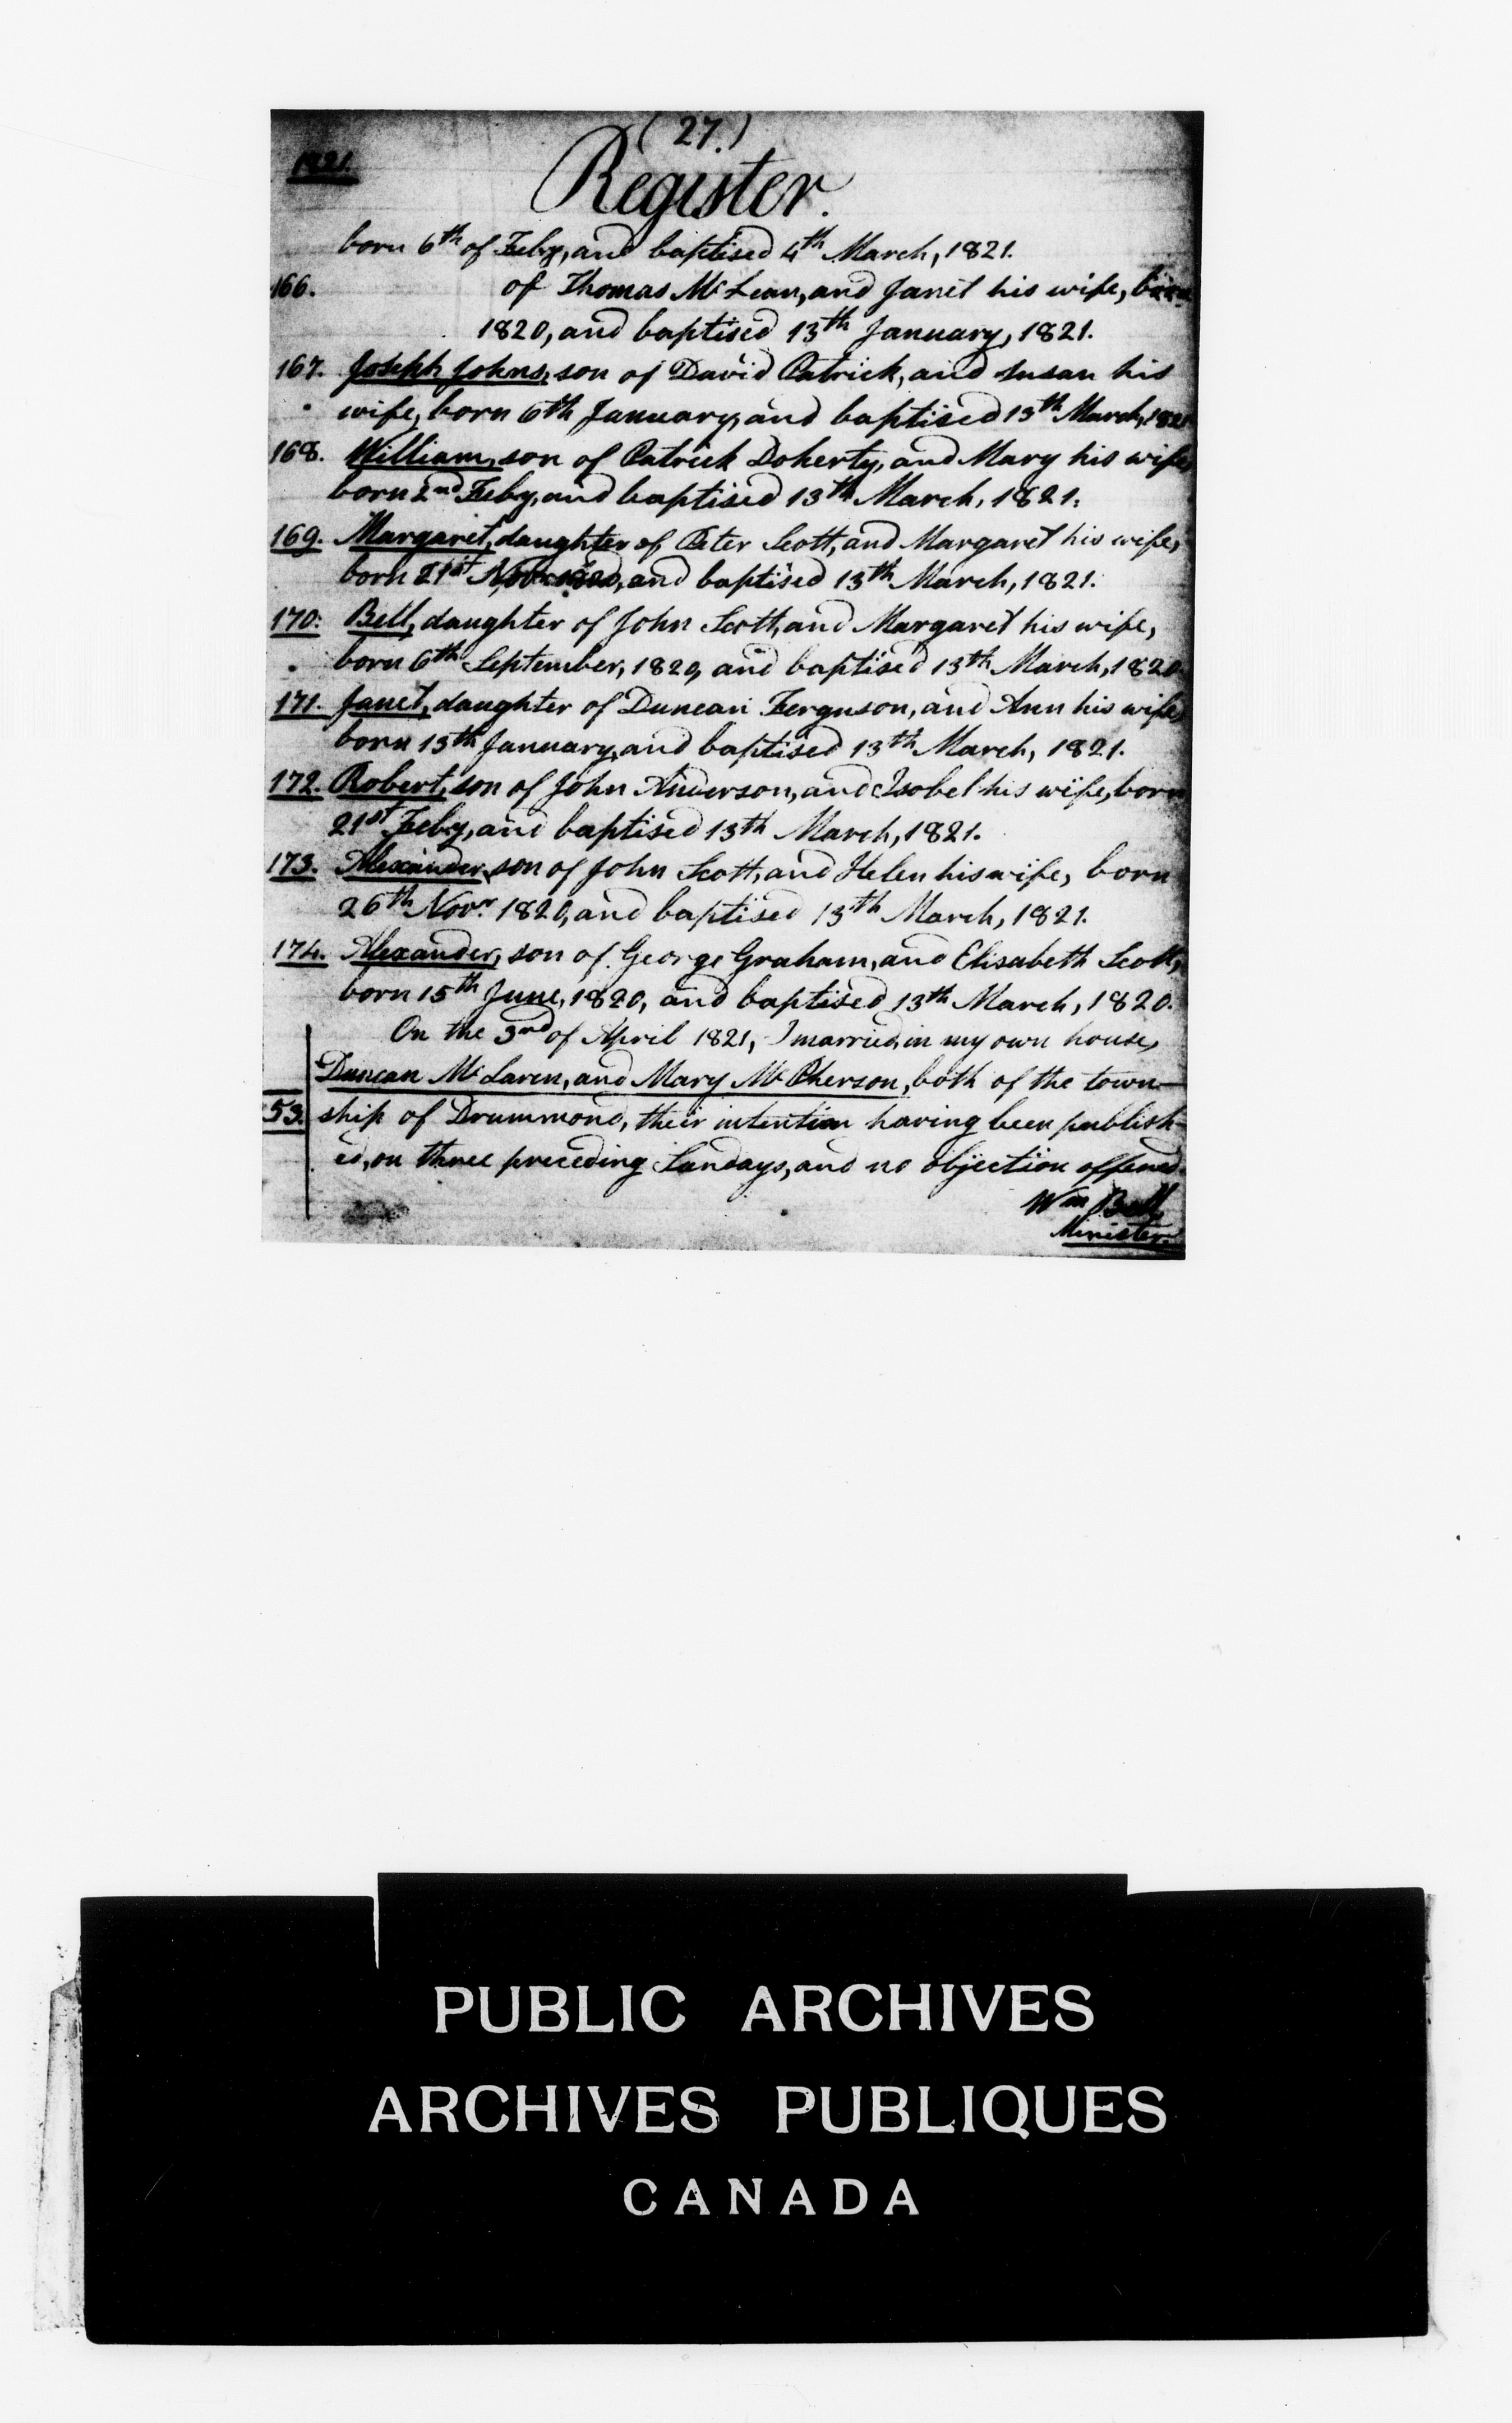 (27.)
1821.
Register.
born 6th of Feby, and baptised 4th March, 1821.
166. of Thomas McLean, and Janet his wife, born
1820, and baptised 13th January, 1821.
167. Joseph Johns, son of David Patrick, and Susan his
wife, born 6th January, and baptised 13th March, 1821
168. William, son of Patrick Doherty, and Mary his wife,
born 2nd Feby, and baptised 13th March, 1821.
169. Margaret, daughter of Peter Scott, and Margaret his wife,
born 21st Novr 1820, and baptised 13th March, 1821.
170. Bell, daughter of John Scott, and Margaret his wife,
born 6th September, 1820, and baptised 13th March, 1820.
171. Janet, daughter of Duncan Ferguson, and Ann his wife,
born 13th January, and baptised 13th March, 1821.
172. Robert, son of John Anderson, and Isobel his wife, born
21st Feby, and baptised 13th March, 1821.
173. Alexander, son of John Scott, and Helen his wife, born
26th Novr. 1820, and baptised 13th March, 1821.
174. Alexander, son of George Graham, and Elisabeth Scott,
born 15th June, 1820, and baptised 13th March, 1820.
On the 3rd of April 1821, I married, in my own house,
Duncan McLaren, and Mary McPherson, both of the town-
53. ship of Drummond, their intention having been publish-
ed, on three preceding Sundays, and no objection offered.
Wm Bell
Minister.
PUBLIC ARCHIVES
ARCHIVES PUBLIQUES
CANADA